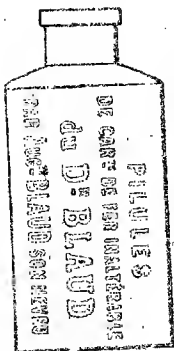 PILULES
DE CARTE DE FER INALTÉRABLE
du
D- BLAUD
BLAUD SON NEVEU